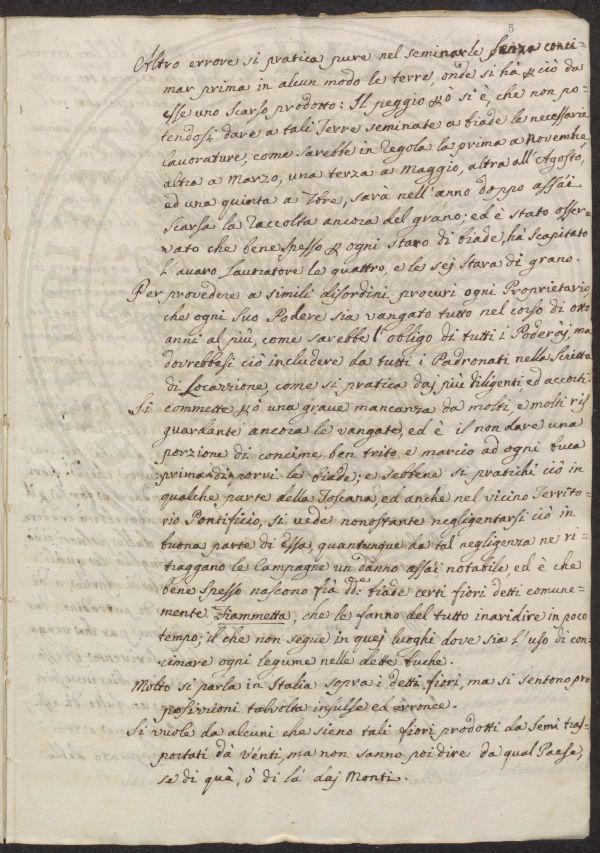 5
Altro errore si pratica pure nel seminarle senza conci-
mar prima in alcun modo le terre, onde si hà p ciò da
esse uno scarso prodotto: Il peggio pò si è, che non po-
tendosi dare a tali Terre seminate a biade le necessarie
lavorature, come sarebbe in regola la prima a Novembre,
altra a Marzo, una terza a Maggio, altra all'Agosto,
ed una quinta a 7bre, sarà nell'anno doppo assai
scarsa la raccolta ancora del grano; ed è stato osser-
vato che bene spesso p ogni staro di biade, hà scapitato
l'avaro Lavoratore le quattro, e le sej stara di grano.
Per provedere a simili disordini procuri ogni Proprietario
che ogni suo Podere sia vangato tutto nel corso di otto
anni al più, come sarebbe l'obligo di tutti i Poderaj, ma
dovrebbesi ciò includere da tutti i Padronati nella Scritta
di Locazzione, come si pratica daj più diligenti ed accorti.
Si commette pò una grave mancanza da molti, e molti ris
guardante ancora le vangate, ed è il non dare una
porzione di concime ben trito e marcio ad ogni buca
prima di porvi le biade; e sebbene si pratichi ciò in
qualche parte della Toscana, ed anche nel vicino Territo-
rio Pontificio, si vede nonostante negligentarsi ciò in
buona parte di Essa, quantunque da tal negligenza ne ri-
traggano le Campagne un danno assai notabile, ed è che
bene spesso nascono frà dde: biade certi fiori detti comune-
mente Fiammetta, che le fanno del tutto inaridire in poco
tempo; il che non segue in quej luoghi dove sia l'uso di con-
cimare ogni legume nelle dette buche.
Molto si parla in Italia sopra i detti fiori, ma si sentono pro
posizioni talvolta insulse ed erronee.
Si vuole da alcuni che sieno tali fiori prodotti da semi tras-
portati dà Vènti, ma non sanno poi dire da qual Paese,
se di quà, ò di là daj Monti.